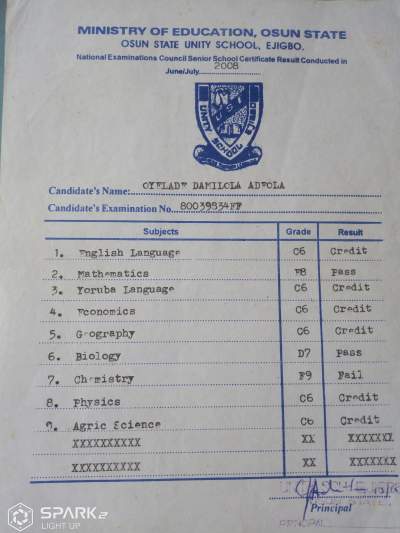 MINISTRY OF EDUCATION, OSUN STATE
OSUN STATE UNITY SCHOOL, EJIGBO.
National Examinations Council Senior School Certificate Result Conducted in
June/July 2008
UNITY SCHOOL
Candidate's Name: OYELADE DAMILOLA ADEOLA
Candidate's Examination No. 80039834FF
Subjects Grade Result
1. English Language C6 Credit
2. Mathematics F8 Pass
3. Yoruba Language C6 Credit
4. Economics C6 Credit
5. Geography C6 Credit
6. Biology D7 Pass
7. Chemistry F9 Fail
8. Physics C6 Credit
9. Agric Science C6 Credit
XXXXXXXXXX XX XXXXXXX
XXXXXXXXXX XX XXXXXXX
Principal
PRINCIPAL
SPARK 2
LIGHT UP